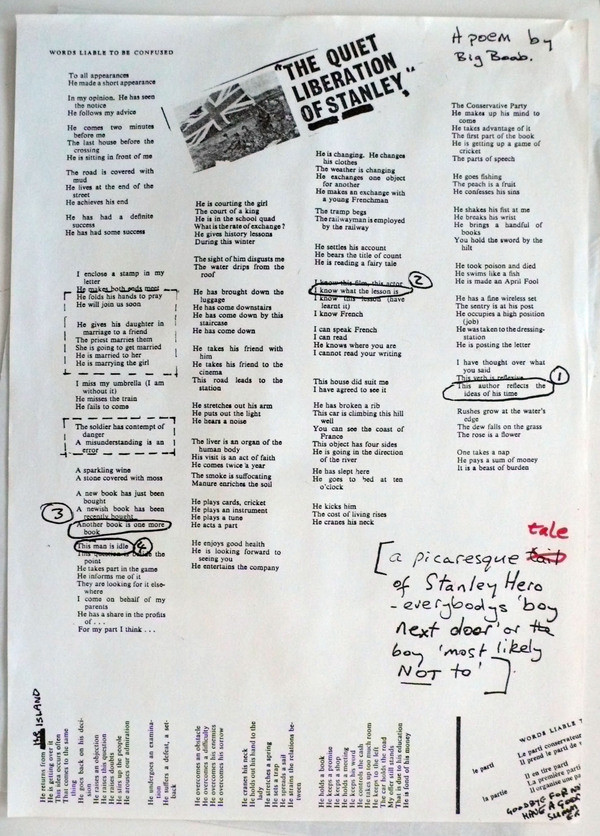 WORDS LIABLE TO BE CONFUSED
To all appearances
He made a short appearance
In my opinion. He has seen
the notice
He follows my advice
He comes two minutes
before me
The last house before the
crossing
He is sitting in front of me
The road is covered with
mud
He lives at the end of the
street
He achieves his end
He has had a definite
success
He has had some success
I enclose a stamp in my
letter
He makes both ends meet
He folds his hands to pray
He will join us soon
He gives his daughter in
marriage to a friend
The priest marries them
She is going to get married
He is married to her
He is marrying the girl
I miss my umbrella (I am
without it)
He misses the train
He fails to come
The soldier has contempt of
danger
A misunderstanding is an
error
A sparkling wine
A stone covered with moss
A new book has just been
bought
A newish book has been
recently bought
3
Another book is one more
book
This man is idle
4
This question is beside the
point
He takes part in the game
He informs me of it
They are looking for it else-
where
I come on behalf of my
parents
He has a share in the profits
of . . .
For my part I think . . .
"THE QUIET
LIBERATION
OF STANLEY"
He is courting the girl
The court of a king
He is in the school quad
What is the rate of exchange?
He gives history lessons
During this winter
The sight of him disgusts me
The water drips from the
roof
He has brought down the
luggage
He has come downstairs
He has come down by this
staircase
He has come down
He takes his friend with
him
He takes his friend to the
cinema
This road leads to the
station
He stretches out his arm
He puts out the light
He hears a noise
The liver is an organ of the
human body
His visit is an act of faith
He comes twice a year
The smoke is suffocating
Manure enriches the soil
He plays cards, cricket
He plays an instrument
He plays a tune
He acts a part
He enjoys good health
He is looking forward to
seeing you
He entertains the company
He is changing. He changes
his clothes
The weather is changing
He exchanges one object
for another
He makes an exchange with
a young Frenchman
The tramp begs
The railwayman is employed
by the railway
He settles his account
He bears the title of count
He is reading a fairy tale
I know this film, this actor
2
I know what the lesson is
I know this lesson (have
learnt it)
I know French
I can speak French
I can read
He knows where you are
I cannot read your writing
This house did suit me
I have agreed to see it
He has broken a rib
This car is climbing this hill
well
You can see the coast of
France
This object has four sides
He is going in the direction
of the river
He has slept here
He goes to bed at ten
o'clock
He kicks him
The cost of living rises
He cranes his neck
A poem by
Big Boab.
The Conservative Party
He makes up his mind to
come
He takes advantage of it
The first part of the book
He is getting up a game of
cricket
The parts of speech
He goes fishing
The peach is a fruit
He confesses his sins
He shakes his fist at me
He breaks his wrist
He brings a handful of
books
You hold the sword by the
hilt
He took poison and died
He swims like a fish
He is made an April Fool
He has a fine wireless set
The sentry is at his post
He occupies a high position
(job)
He was taken to the dressing-
station
He is posting the letter
I have thought over what
you said
This verb is reflexive
1
This author reflects the
ideas of his time
Rushes grow at the water's
edge
The dew falls on the grass
The rose is a flower
One takes a nap
He pays a sum of money
It is a beast of burden
tale
[a picaresque
of Stanley Hero
- everybodys 'boy
next door' or the
boy 'most likely
NOT to'].
He returns from ISLAND
He is getting over it
This idea occurs often
That comes to the same
thing
He goes back on his deci-
sion
He raises an objection
He raises this question
He raises doubts
He stirs up the people
He arouses our admiration
He undergoes an examina-
tion
He suffers a defeat, a set-
back
He overcomes an obstacle
He overcomes a difficulty
He overcomes his enemies
He overcomes his sorrow
He cranes his neck
He holds out his hand to the
lady
He stretches a spring
He sets a trap
He spreads a sail
He strains the relations be-
tween
He holds a book
He keeps a promise
He keeps a shop
He holds a meeting
He keeps his word
He controls the cash
He takes up too much room
He keeps to the left
The car holds the road
My offer still stands
That is due to his education
He is fond of his money
WORDS LIABLE T
le parti
Le parti conservateur
Il prend le parti de
Il en tire parti
la partie
La première partie
Il organise une pa
GOODBYE FOR NOW
HAVE A GOOD